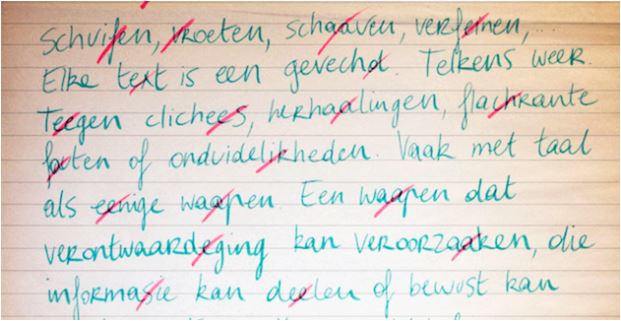 Schuifen, vroeten, schaaven, verfeinen,...
Elke text is een gevechd. Telkens weer.
Teegen clichees, herhaalingen, flachrante
fouten of onduidelijkheden. Vaak met taal
als eenige waapen. Een waapen dat
verontwaardeging kan veroorzaaken, die
informasie kan deelen of bewust kan